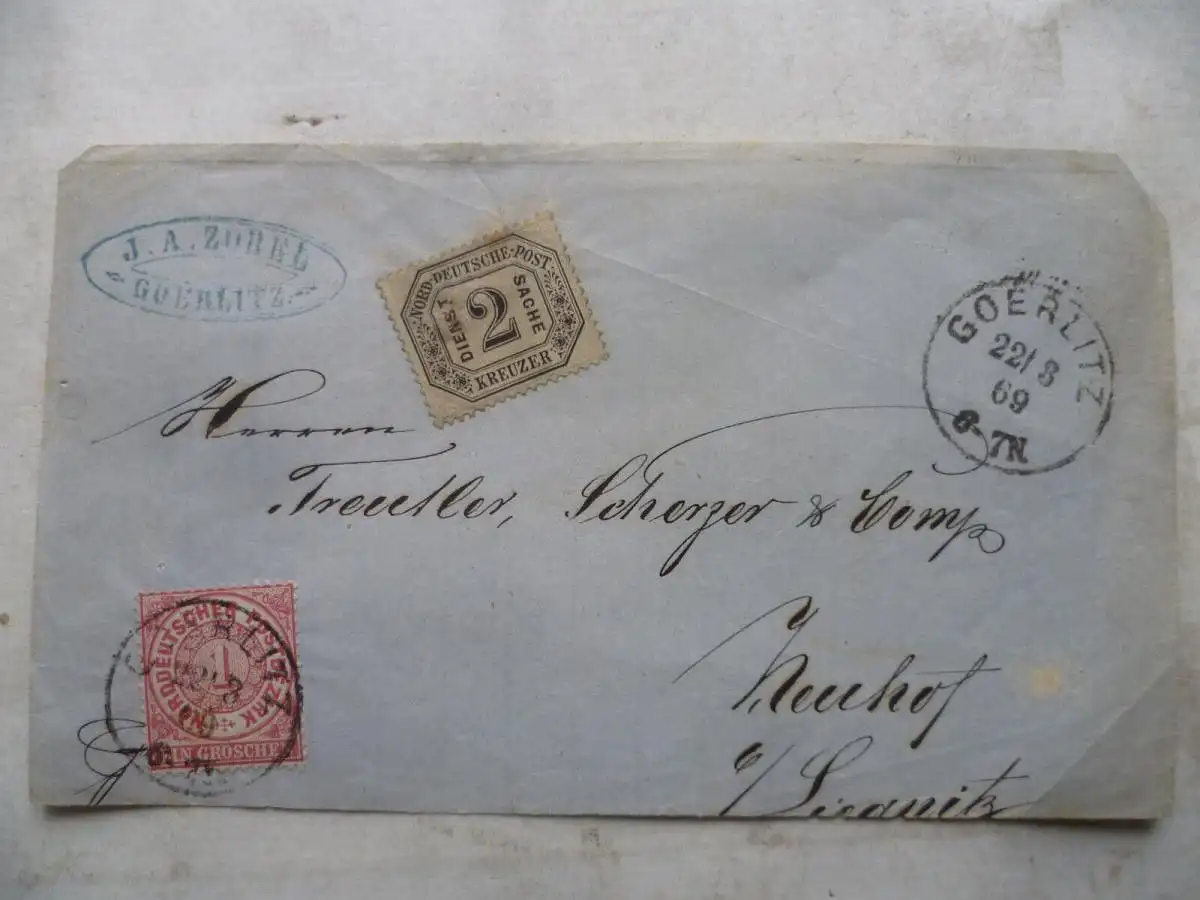 J. A. ZOBEL
GOERLITZ
NORD-DEUTSCHE-POST
DIENST SACHE
2
KREUZER
GOERLITZ
22/ 3
69
6-7N
Herren
Treutler, Scherzer & Comp
Neuhof
b/ Liegnitz
NORDDEUTSCHER POSTBEZIRK
1
EIN GROSCHEN
GOERLITZ
22/ 3
69